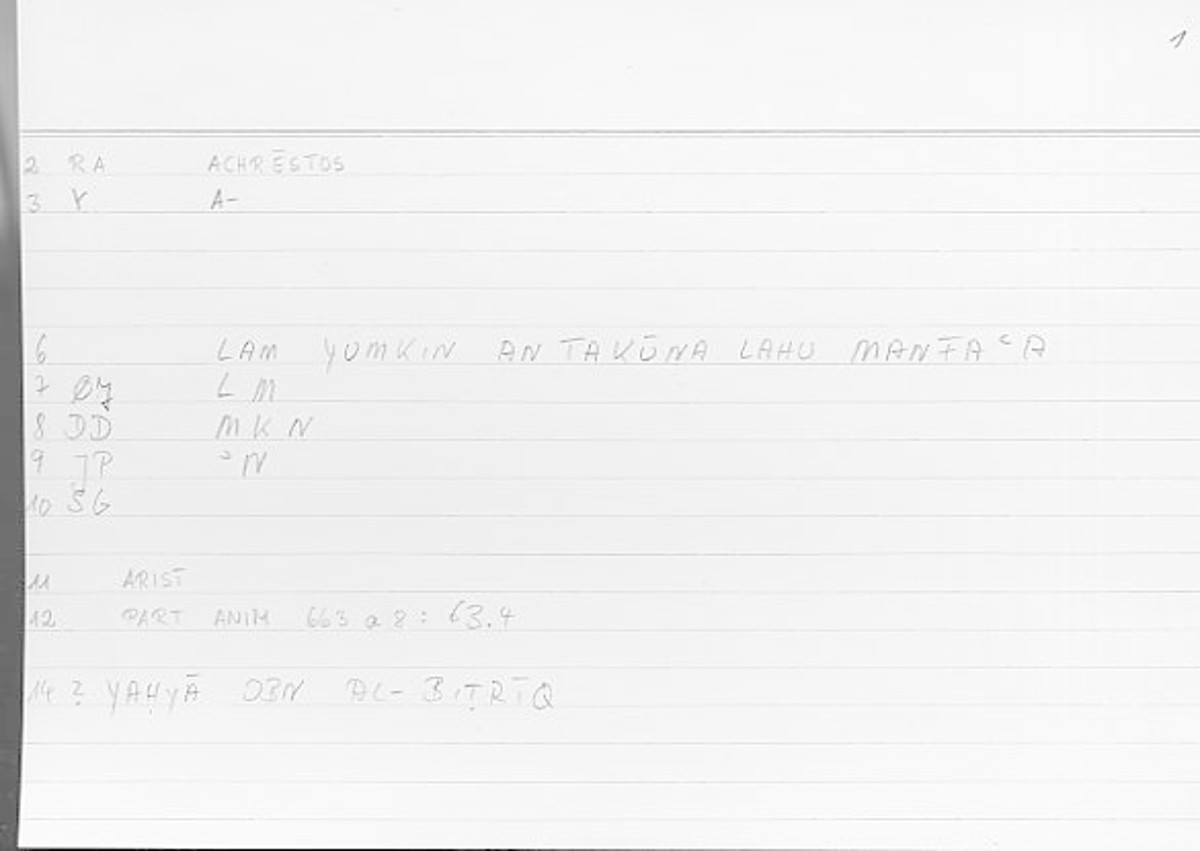 1
2 RA ACHRĒSTOS
3 Y A-
6 LAM YUMKIN AN TAKŪNA LAHU MANFAʿA
7 L M
8 DD MKN
9 JP ʾN
10 SG
11 ARIST
12 PART ANIM 663 a 8 : 63.4
14 ? YAḤYĀ IBN AL-BIṬRĪQ